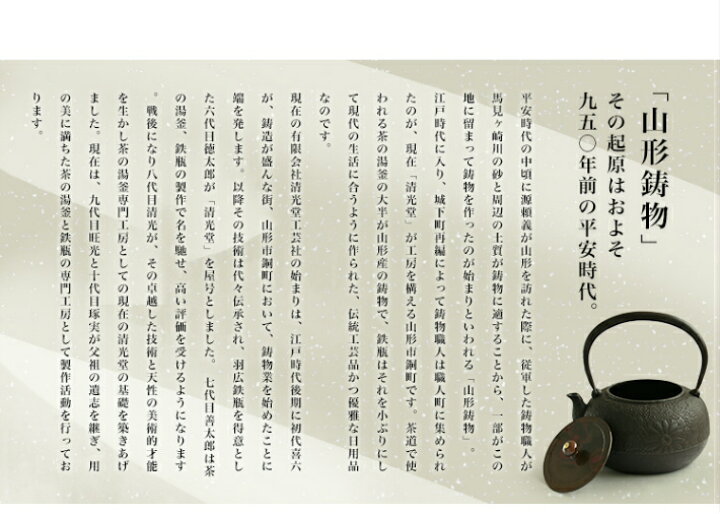 「山形鋳物」
その起原はおよそ
九五〇年前の平安時代。
平安時代の中頃に源頼義が山形を訪れた際に、従軍した鋳物職人が
馬見ヶ崎川の砂と周辺の土質が鋳物に適することから、一部がこの
地に留まって鋳物を作ったのが始まりといわれる「山形鋳物」。
江戸時代に入り、城下町再編によって鋳物職人は職人町に集められ
たのが、現在「清光堂」が工房を構える山形市銅町です。茶道で使
われる茶の湯釜の大半が山形産の鋳物で、鉄瓶はそれを小ぶりにし
て現代の生活に合うように作られた、伝統工芸品かつ優雅な日用品
なのです。
現在の有限会社清光堂工芸社の始まりは、江戸時代後期に初代喜六
が、鋳造が盛んな街、山形市銅町において、鋳物業を始めたことに
端を発します。以降その技術は代々伝承され、羽広鉄瓶を得意とし
た六代目徳太郎が「清光堂」を屋号としました。七代目善太郎は茶
の湯釜、鉄瓶の製作で名を馳せ、高い評価を受けるようになります
。戦後になり八代目清光が、その卓越した技術と天性の美術的才能
を生かし茶の湯釜専門工房としての現在の清光堂の基礎を築きあげ
ました。現在は、九代目旺光と十代目塚実が父祖の遺志を継ぎ、用
の美に満ちた茶の湯釜と鉄瓶の専門工房として製作活動を行ってお
ります。